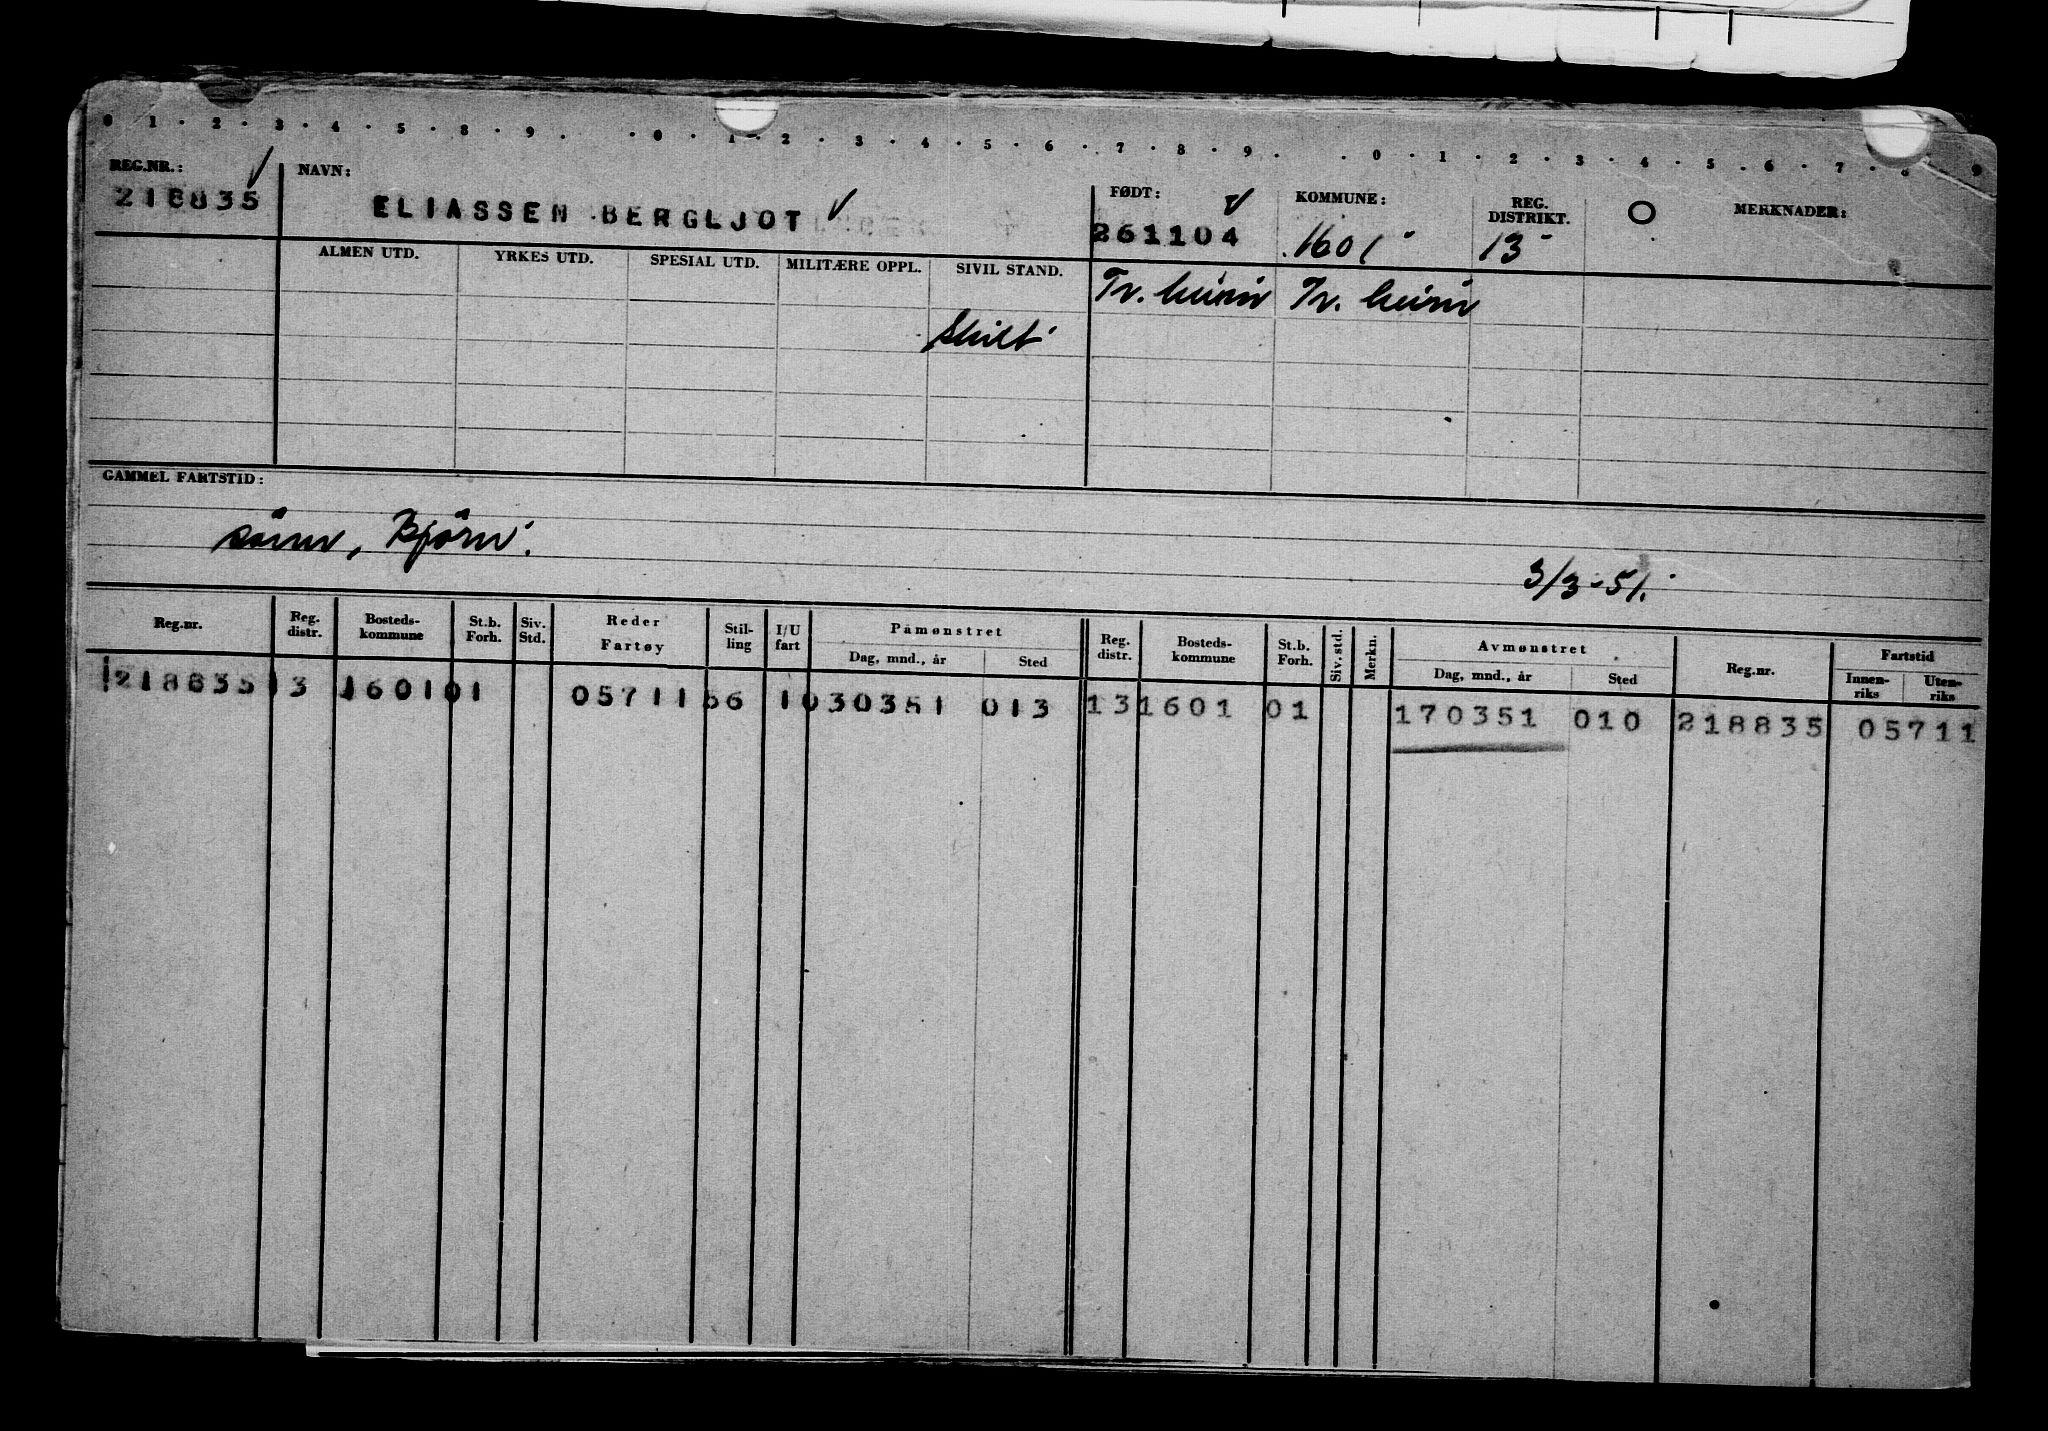 0 1 · 2 · 3 · 4 · 5 · 8 · 9 . · 0 · 1 · 2 · 3 · 4 · 5 · 6 · 7 · 8 · 9 · · 0 · 1 · 2 · 3 · 4 · 5 · 6 · 7 · 8 · 9
REG.NR.: NAVN: FØDT: KOMMUNE: REG. DISTRIKT. O MERKNADER:
218835 ELIASSEN BERGLJOT 261104 1601 13
ALMEN UTD. YRKES UTD. SPESIAL UTD. MILITÆRE OPPL. SIVIL STAND.
Tr.heim Tr.heim
Skilt
GAMMEL FARTSTID:
sønn, Bjørn.
3/3-51.
Reg.nr. Reg. distr. Bosteds-kommune St.b. Forh. Siv. Std. Reder Fartøy Stil-ling I/U fart Påmønstret Dag, mnd., år Sted Reg. distr. Bosteds-kommune St.b. Forh. Siv. std. Merkn. Avmønstret Dag, mnd., år Sted Reg.nr. Fartstid Innen-riks Uten-riks
218835 13 1601 01 05711 56 10 30351 013 13 1601 01 170351 010 218835 05711